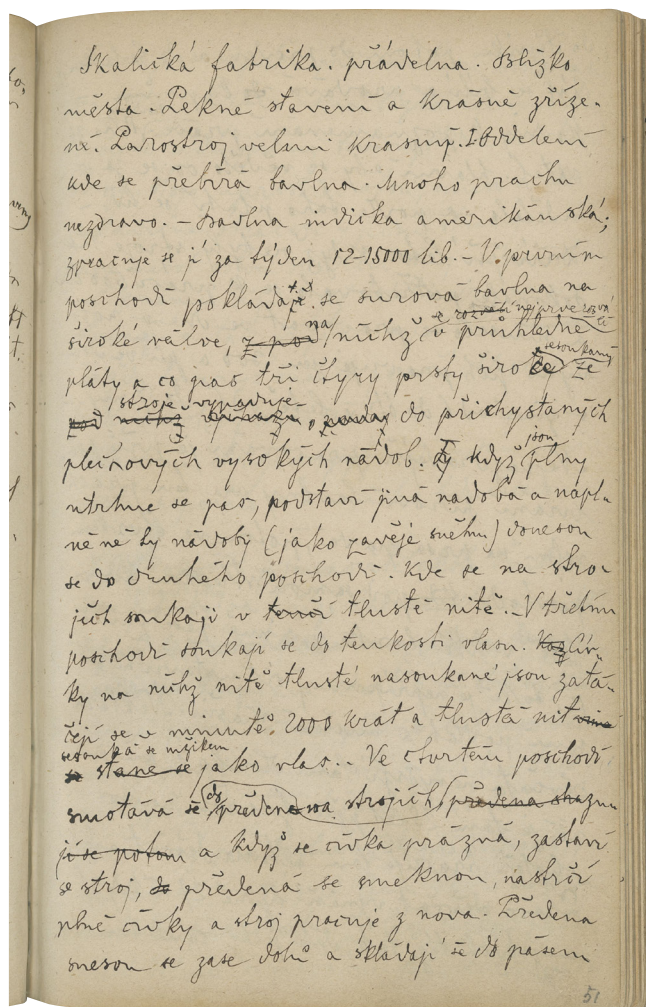 Skalická fabrika. přádelna. Blízko
města. Pekné stavení a krásně zříze-
né. Parostroj velmi krásný. I. Oddelení
kde se přebírá bavlna. Mnoho prachu
nezdravo. – Bavlna indická amerikánská;
zpracuje se jí za týden 12-15000 lib. – V prvním
poschodí pokládá se surová bavlna na
se rozvětí nejprve rozvá
široké válce, z pod na nichž v průhledné
sesoukaný
pláty a co pás tří čtyry prsty široký že
stroje vypaduje
pod nichž do přichystaných
jsou
plechových vysokých nádob. Ty když plny
utrhne se pas, podstaví jiná nadoba a napl-
něné ty nádoby (jako závěje sněhu) donesou
se do druhého poschodí. Kde se na stro-
jích soukají v tenčí tlusté nitě. – V třetím
poschodí soukají se do tenkosti vlasu. Cív-
ky na nichž nitě tlusté nasoukané jsou zatá-
čejí se v minutě 2000 krát a tlustá nit
sesouká se mžikem
se stane se jako vlas.. Ve čtvrtém poschodí
smotává se do předena na strojích předena
jí se potom a když se cívka prázná, zastaví
se stroj, do předená se smeknou, nastrčí
plné cívky a stroj pracuje z nova. Předena
snesou se zase dolů a skládají se do pásem
51